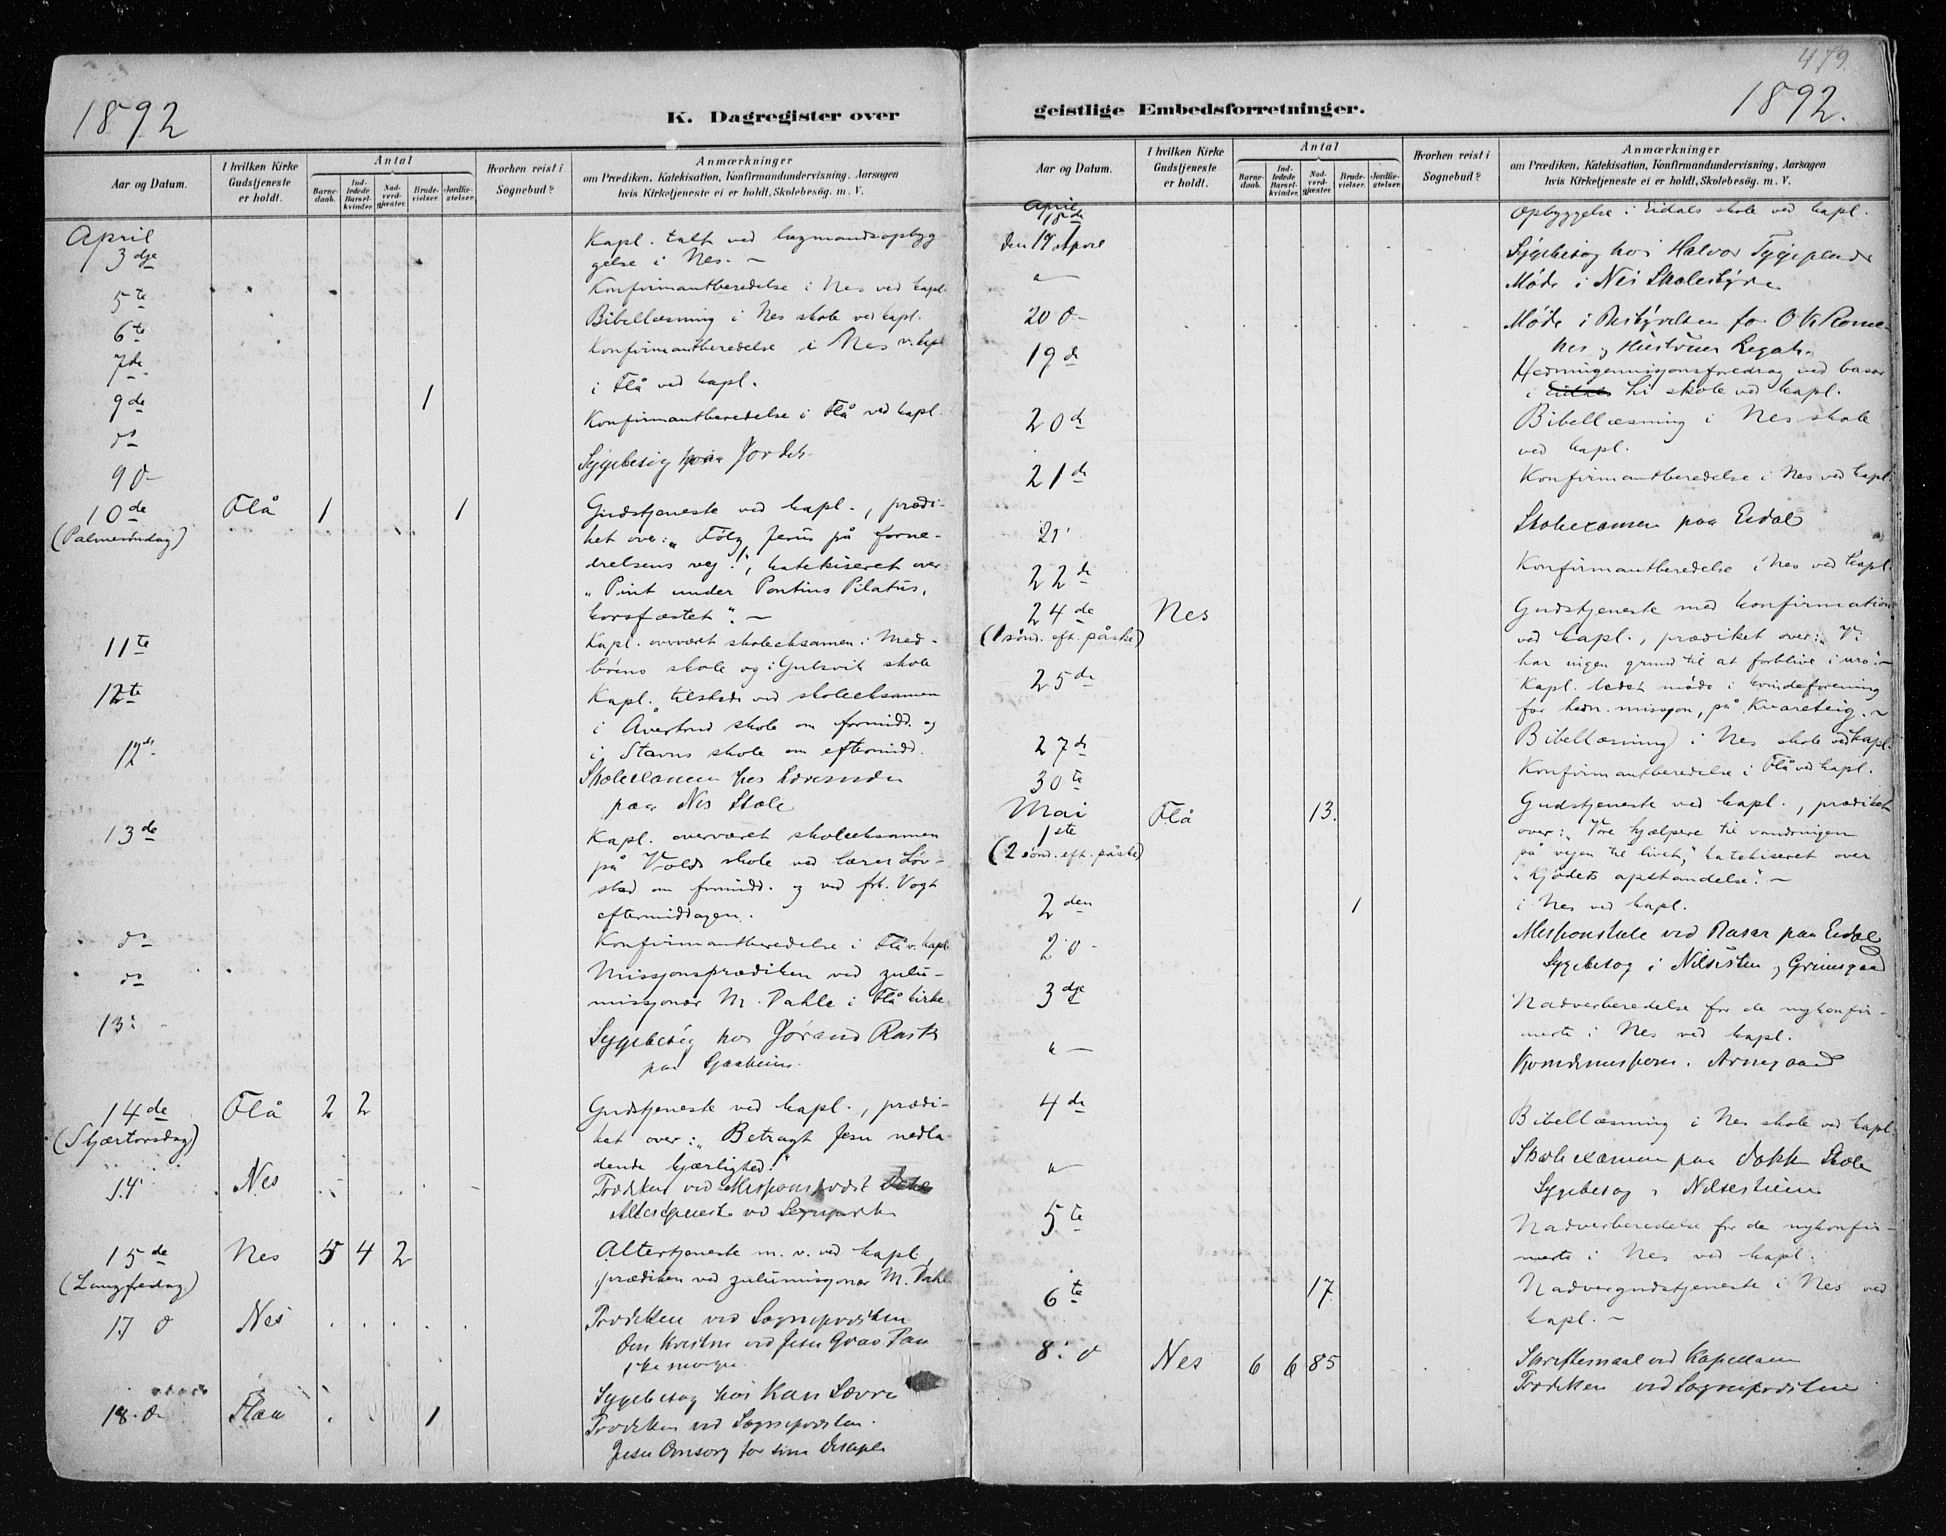 1892
K. Dagregister over
Aar og Datum.
I hvilken Kirke Gudstjeneste er holdt.
Antal
Barnedaab.
Indledede Barselkvinder.
Nadverdgjæster.
Brudevielser.
Jordfæstelser.
Hvorhen reist i Sognebud?
Anmærkninger
om Prædiken, Katekisation, Konfirmandundervisning, Aarsagen
hvis Kirketjeneste ei er holdt, Skolebesøg m. V.
April
3dje
Kapl. talt ved lægmandsopbyg-
gelse i Nes. –
5te
Konfirmantberedelse i Nes ved kapl.
6te
Bibellæsning i Nes skole ved kapl.
7de
Konfirmantberedelse i Nes v. kapl
9de 1
i Flå ved kapl.
do
Konfirmantberedelse i Flå ved kapl.
9 d–
Sygebesøg
10de Flå 1 1
(Palmesøndag)
Gudstjeneste ved kapl., prædi-
ket over: „Følg Jesus på forne-
drelsens vej!", katekiseret over
„Pint under Pontius Pilatus,
korsfæstet". –
11te
Kapl. overværet skoleeksamen i Med-
skole og i Gulsvik skole
12te
Kapl. tilstede ved skoleeksamen
i skole om formidd. og
i Stavns skole om eftermidd.
12te
Skoleexamen hos
paa Nes Skole
13de
Kapl. overværet skoleeksamen
på Volds skole ved lærer Løv-
stad om formidd. og ved frk. Vogt
eftermiddagen.
do
Konfirmantberedelse i Flå v. kapl
do
Missjonsprædiken ved zulu-
missjonær M. Dahle i Flå kirke
13:
Sygebesøg hos
paa
14de Flå 2 2
(Skjærtorsdag)
Gudstjeneste ved kapl., prædi-
ket over: „Betragt Jesu nedla-
dende kjærlighed!"
14 Nes
Prædiken ved
Altertjeneste ved
15de Nes 5 4 2
(Langfredag)
Altertjeneste m. v. ved kapl,
prædiken ved zulumissjonær M. Dahl
17 d Nes
Prædiken ved Sognepræsten
ved Jesu Grav
18. d– Flaa 1
Sygebesøg hos Kari Sævre
Prædiken ved Sognepræsten.
Jesu Omsorg for sine Disciple
479
geistlige Embedsforretninger.
1892.
Aar og Datum.
I hvilken Kirke Gudstjeneste er holdt.
Antal
Barnedaab.
Indledede Barselkvinder.
Nadverdgjæster.
Brudevielser.
Jordfæstelser.
Hvorhen reist i Sognebud?
Anmærkninger
om Prædiken, Katekisation, Konfirmandundervisning, Aarsagen
hvis Kirketjeneste ei er holdt, Skolebesøg m. V.
April
18de
Opbyggelse i Eidals skole ved kapl.
den 19 April
Sygebesøg hos Halvor
"–
Møde i Nes Skolestyre
20 d–
Møde i Bestyrelsen for
Hustrues Legat.
19de
Hedningemissjonsforedrag ved basar
i Li skole ved kapl.
20de
Bibellæsning i Nes skole
ved kapl.
21de
Konfirmantberedelse i Nes ved kapl
21
Skoleexamen paa Eidal
22de
Konfirmantberedelse i Nes ved kapl.
24de Nes
(1 sønd. eft. påske)
Gudstjeneste med konfirmation
ved kapl., prædiket over: „Vi
har ingen grund til at forblive i uro". –
25de
Kapl. ledet møde i kvindeforening
for hedn. missjon, på Kvareteig. –
27de
Bibellæsning i Nes skole ved kapl.
30te
Konfirmantberedelse i Flå ved kapl.
Mai
1ste Flå 13.
(2 sønd. eft. påske)
Gudstjeneste ved kapl., prædiket
over: „Vore hjælpere til vandringen
på vejen til livet", katekiseret over
„Kjødets opstandelse". –
2den 1
i Nes ved kapl.
2 d–
Missionstale ved Basar paa Eidal
Sygebesøg i Nilsistien og Grimsgaard
3dje
Nadverberedelse for de nykonfir-
merte i Nes ved kapl.
"–
4de
Bibellæsning i Nes skole ved kapl.
"–
Skoleexamen paa Skole
Sygebesøg i
5te
Nadverberedelse for de nykonfir-
merte i Nes ved kapl.
6te 17
Nadvergudstjeneste i Nes ved
kapl. –
8. d Nes 6 6 85
Skriftemaal ved Kapellanen
Prædiken ved Sognepræsten